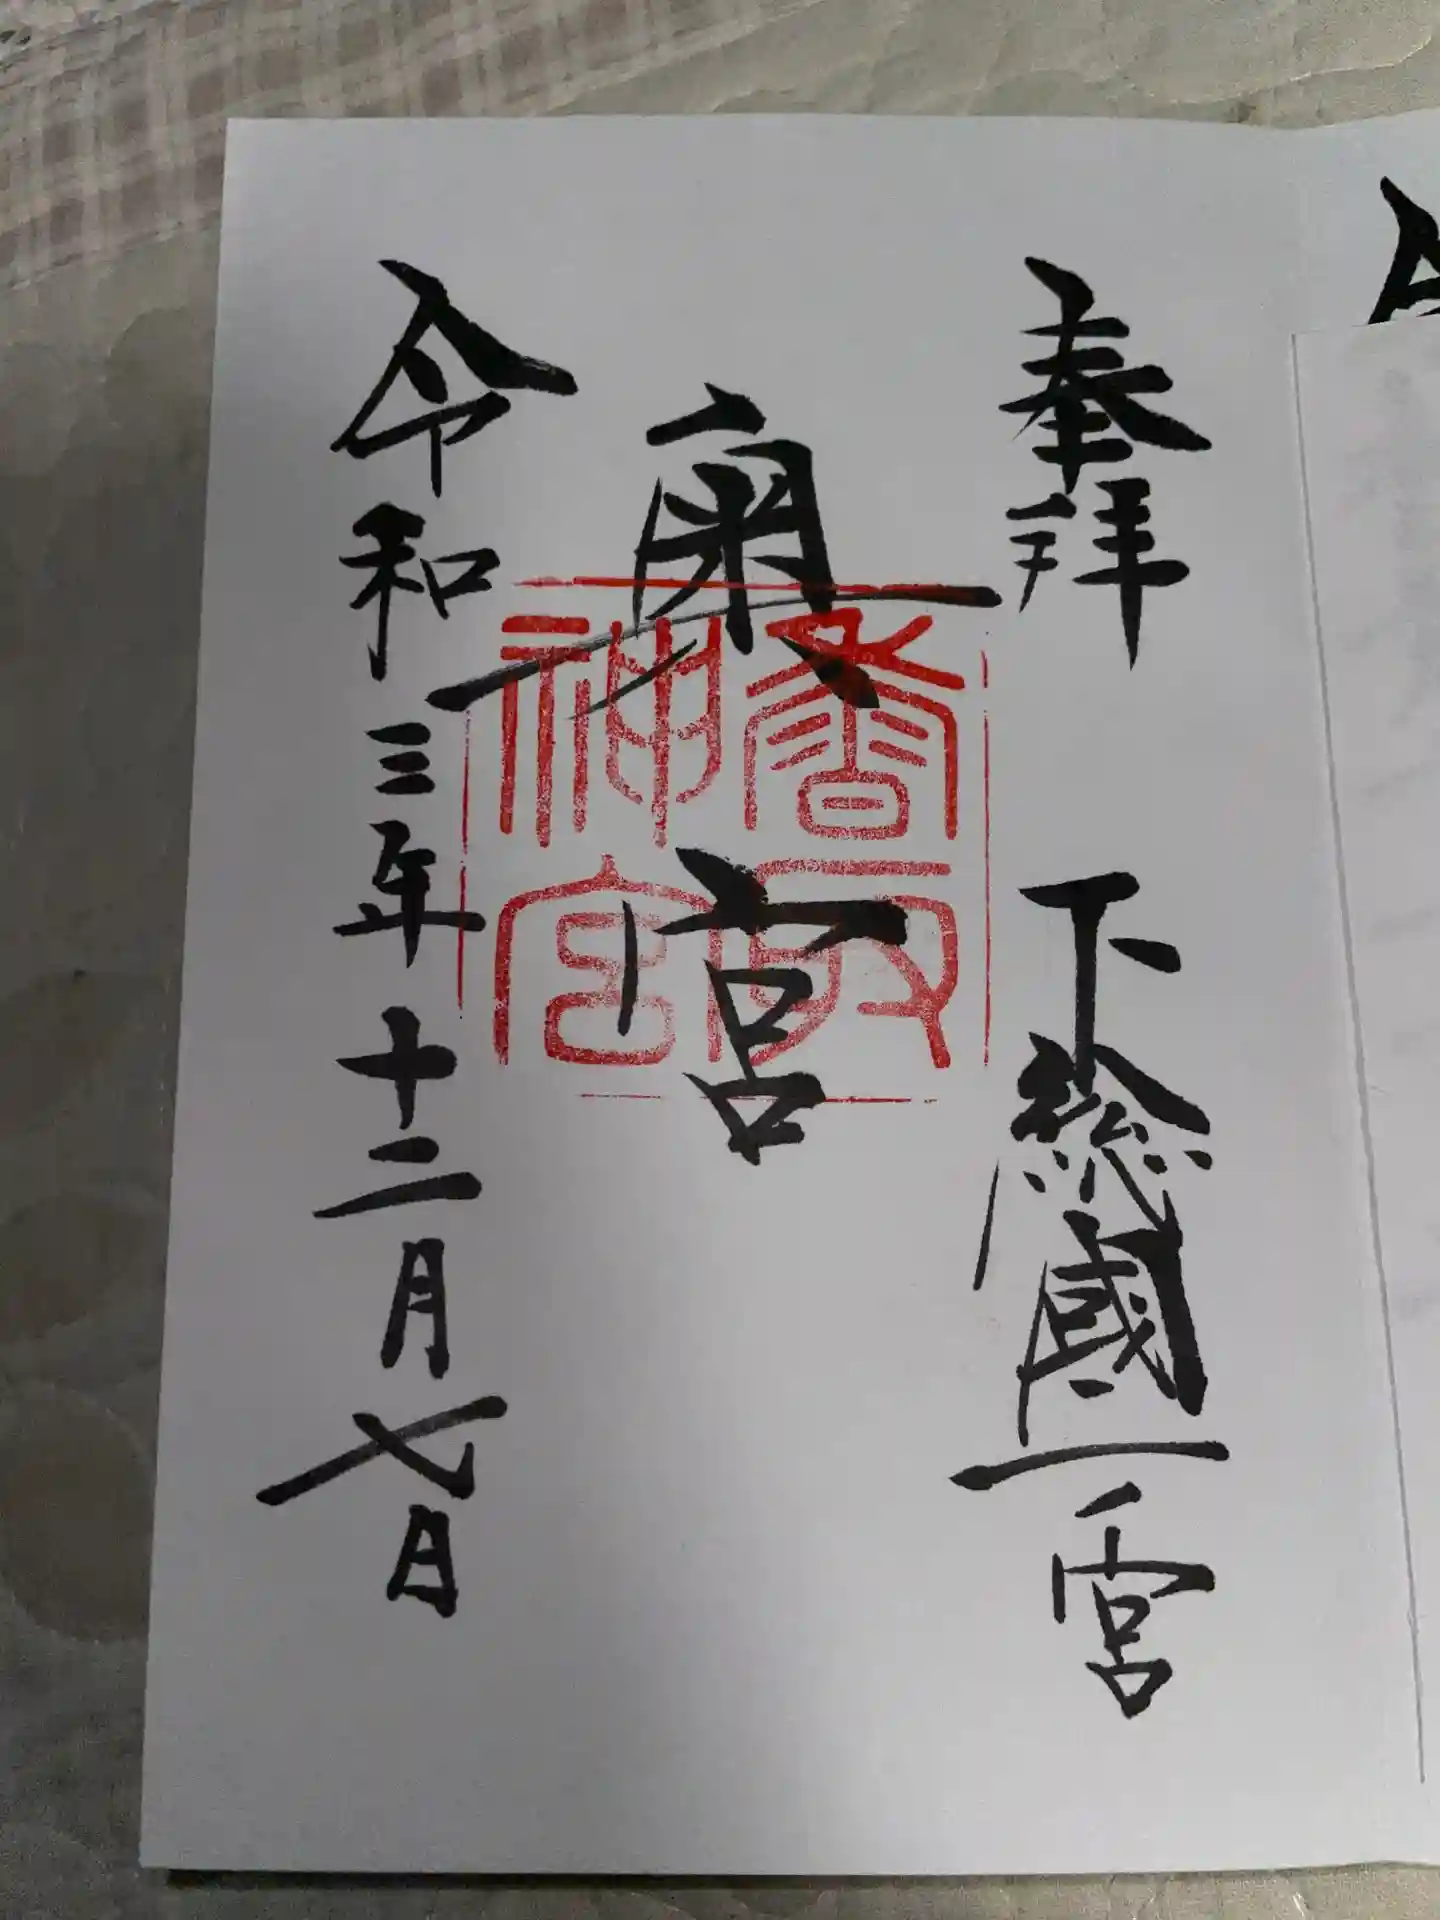 奉拝 下総國一宮
奥宮
香取神宮
令和三年十二月七日